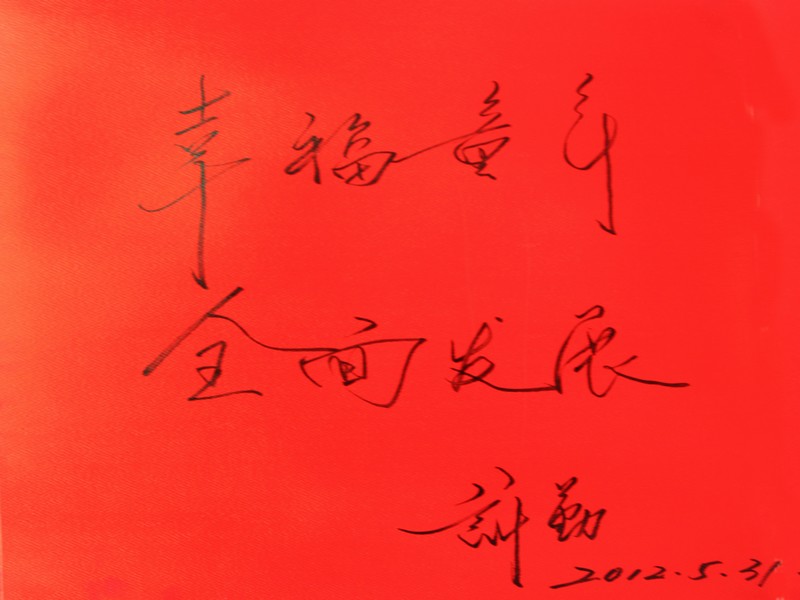 幸福童年
全面发展
勤
2012.5.31.